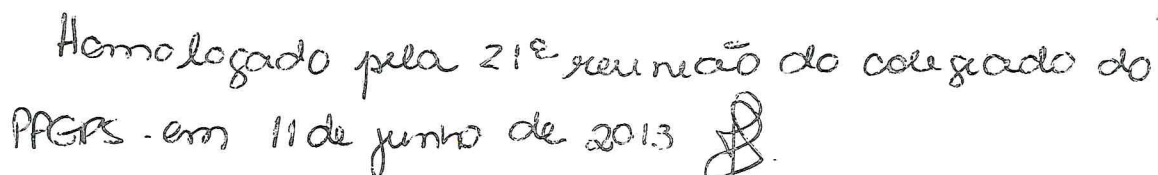 Homologado pela 21ª reunião do colegiado do
PPGPS - em 11 de junho de 2013